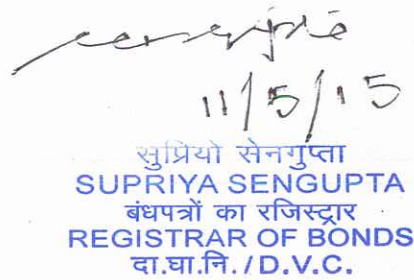 11/5/15
सुप्रियो सेनगुप्ता
SUPRIYA SENGUPTA
बंधपत्रों का रजिस्ट्रार
REGISTRAR OF BONDS
दा.घा.नि. / D.V.C.